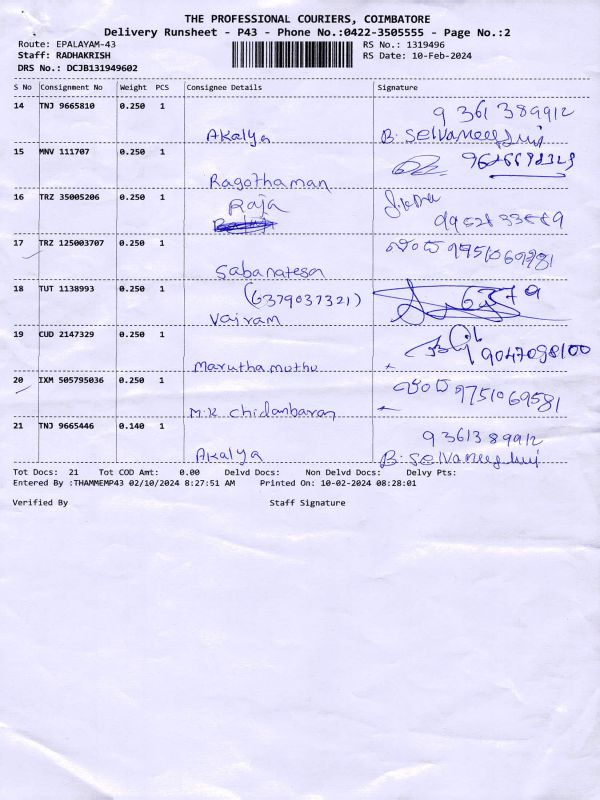 THE PROFESSIONAL COURIERS, COIMBATORE
Delivery Runsheet - P43 - Phone No.:0422-3505555 - Page No.:2
Route: EPALAYAM-43 RS No.: 1319496
Staff: RADHAKRISH RS Date: 10-Feb-2024
DRS No.: DCJB131949602
S No Consignment No Weight PCS Consignee Details Signature
14 TNJ 9665810 0.250 1 9361389912
Akalya B. Selvaneey
15 MNV 111707 0.250 1
Ragothaman
16 TRZ 35005206 0.250 1 Raja
17 TRZ 125003707 0.250 1
Sabanatesan
18 TUT 1138993 0.250 1 (6379037321) 6379
Vairam
19 CUD 2147329 0.250 1 9047098100
Marutha muthu
20 IXM 505795036 0.250 1 9751069581
M.K. Chidanbaran
21 TNJ 9665446 0.140 1 9361389912
Akalya B. Selvaneey
Tot Docs: 21 Tot COD Amt: 0.00 Delvd Docs: Non Delvd Docs: Delvy Pts:
Entered By :THAMMEMP43 02/10/2024 8:27:51 AM Printed On: 10-02-2024 08:28:01
Verified By Staff Signature